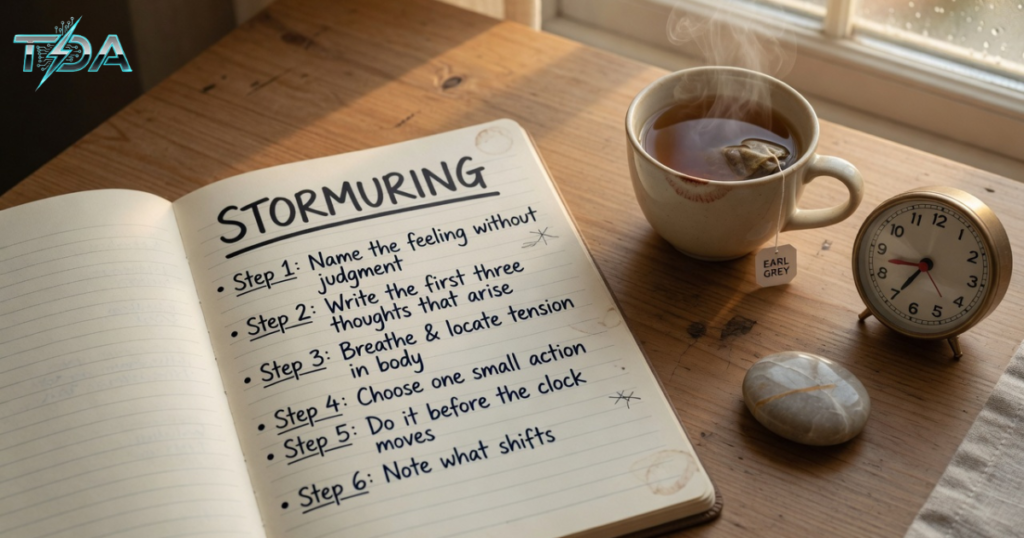 TDA
STORMURING
• Step 1: Name the feeling without
judgment
• Step 2: Write the first three
thoughts that arise
• Step 3: Breathe & locate tension
in body
• Step 4: Choose one small action
• Step 5: Do it before the clock
moves
• Step 6: Note what shifts
EARL
GREY
11 12 1
10 2
9 3
8 4
7 6 5